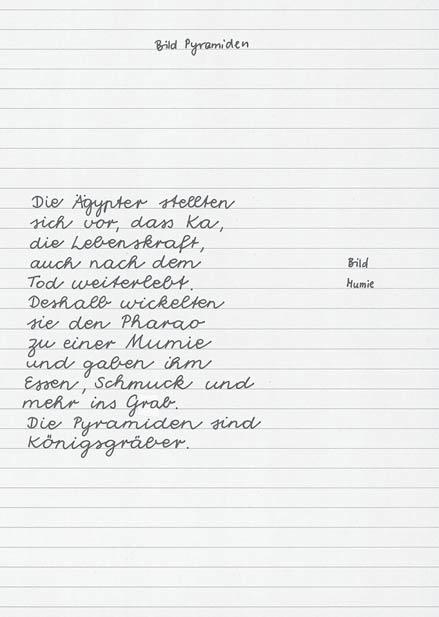 Bild Pyramiden
Die Ägypter stellten
sich vor, dass Ka,
die Lebenskraft,
auch nach dem
Tod weiterlebt.
Deshalb wickelten
sie den Pharao
zu einer Mumie
und gaben ihm
Essen, Schmuck und
mehr ins Grab.
Die Pyramiden sind
Königsgräber.
Bild
Mumie